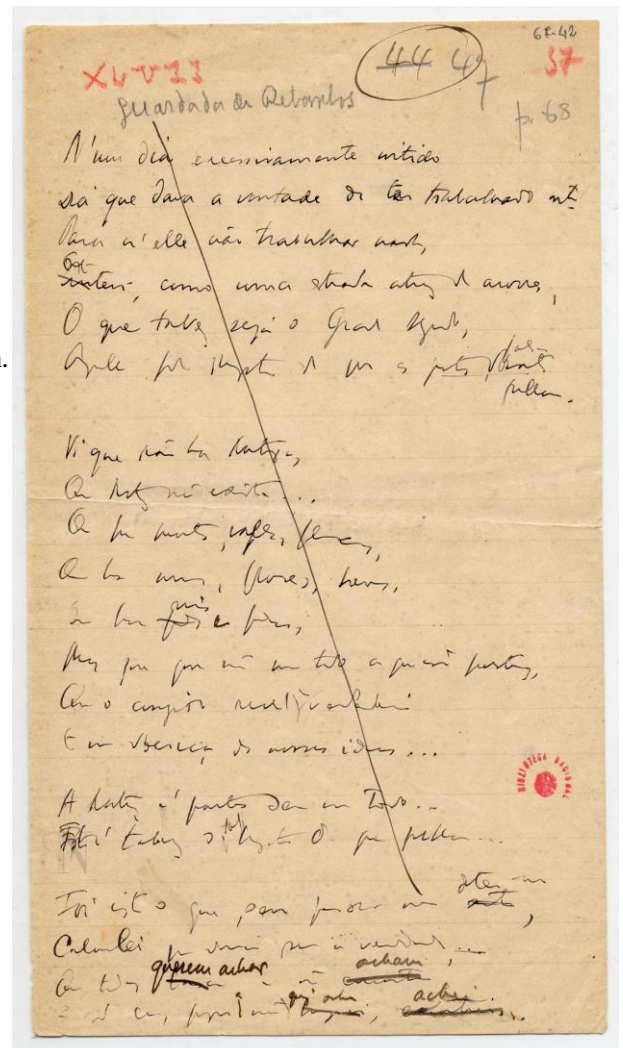 67-42
XLVII 44 47 57
Guardador de Rebanhos p. 68
N'um dia excessivamente nitido
Dia que dava a vontade de ter trabalhado mto
Para n'elle não trabalhar nada,
como uma estrada atraz d'arvores,
O que talvez seja o Grande Segredo,
de que os poetas falsos
fallam.
Vi que não ha Natureza,
Que Natureza não existe...
Que ha montes, valles, planicies,
Que ha arvores, flores, hervas,
Que ha rios e pedras,
Mas que não ha um todo a que isso pertença,
Que o conjuncto real e verdadeiro
É uma doença de nossas idéas...
A Natureza é partes sem um Todo...
Isto é talvez o tal mysterio de que fallam...
Foi isto o que, sem pensar nem deter-me,
que devia ser a verdade...
Que todos querem achar e não acham
E só eu, porque a não quiz achar, achei.
BIBLIOTECA NACIONAL